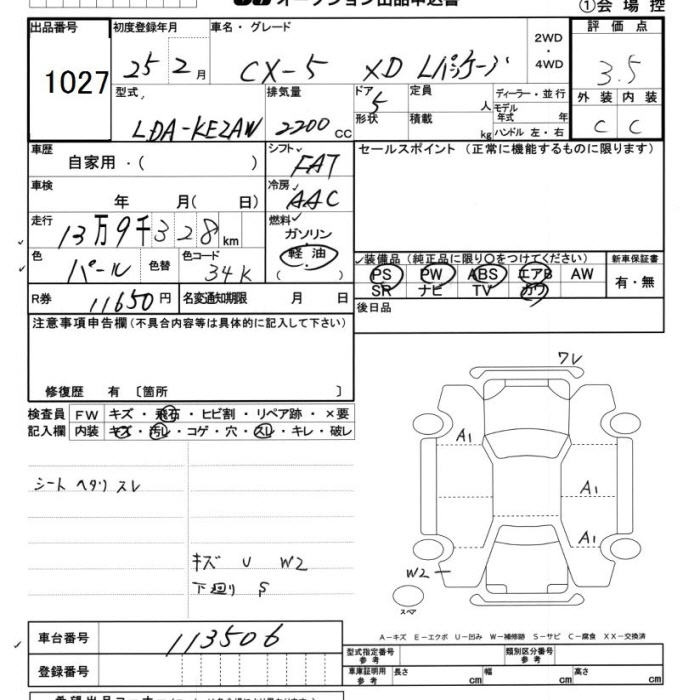 オークション出品申込書
①会 場 控
出品番号
1027
初度登録年月
25 2月
車名・グレード
CX-5 XD Lパッケージ
2WD
・
4WD
評 価 点
3.5
型式
LDA-KE2AW
排気量
2200 CC
ドア 5
形状
定員 人
積載 kg
ディーラー・並行
モデル年式 年
ハンドル 左・右
外 装 内 装
C C
車歴
自家用・( )
シフト
FAT
セールスポイント(正常に機能するものに限ります)
車検
年 月( 日)
冷房
AAC
走行
13万9千328km
燃料
ガソリン
軽 油
( )
色
パール
色替
色コード
34K
装備品(純正品に限り〇をつけてください)
新車保証書
PS PW ABS エアB AW
SR ナビ TV カワ
有・無
R券 11650円
名変通知期限 月 日
後日品
注意事項申告欄(不具合内容等は具体的に記入して下さい)
修復歴 有〔箇所 〕
検査員
記入欄
FW キズ・飛石・ヒビ割・リペア跡・×要
内装 キズ・汚レ・コゲ・穴・スレ・キレ・破レ
シート ヘタリ スレ
キズ U W2
下廻り S
ワレ
A1
A1
A1
W2
スペア
A-キズ E-エクボ U-凹み W-補修跡 S-サビ C-腐食 XX-交換済
車台番号 113506
登録番号
型式指定番号
参 考
類別区分番号
参 考
車庫証明用
参 考
長さ cm 幅 cm 高さ cm